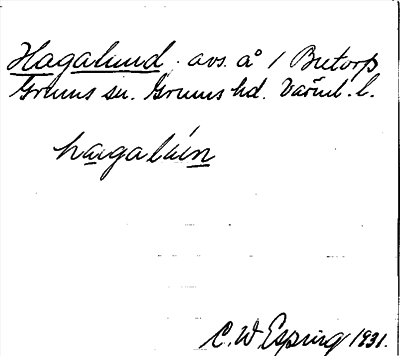 Hagalund avs. å 1 Butorp
Grums sn. Grums hd. Värml. l.
hagalún
C. W. Esping 1931.